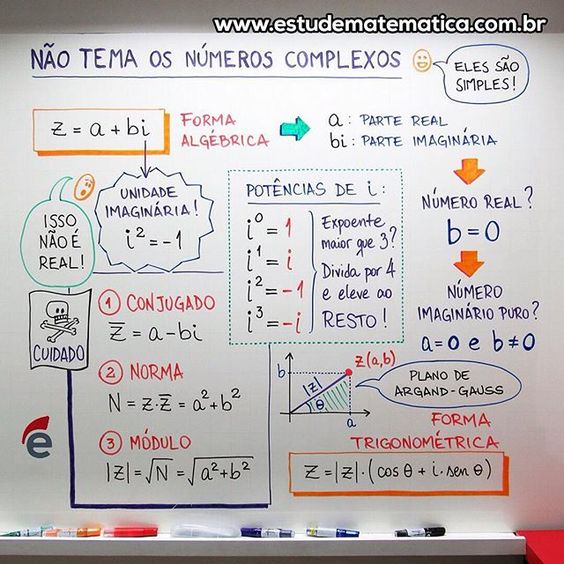 www.estudematematica.com.br
NÃO TEMA OS NÚMEROS COMPLEXOS
ELES SÃO
SIMPLES!
z = a + bi
FORMA
ALGÉBRICA
a: PARTE REAL
bi: PARTE IMAGINÁRIA
ISSO
NÃO É
REAL!
UNIDADE
IMAGINÁRIA!
i² = -1
POTÊNCIAS DE i:
i⁰ = 1
i¹ = i
i² = -1
i³ = -i
Expoente
maior que 3?
Divida por 4
e eleve ao
RESTO!
NÚMERO REAL?
b = 0
NÚMERO
IMAGINÁRIO PURO?
a = 0 e b ≠ 0
CUIDADO
1 CONJUGADO
z̅ = a - bi
2 NORMA
N = z·z̅ = a² + b²
3 MÓDULO
|z| = √N = √a² + b²
b
z(a,b)
|z|
θ
a
PLANO DE
ARGAND-GAUSS
FORMA
TRIGONOMÉTRICA
z = |z|·(cos θ + i. sen θ)
e